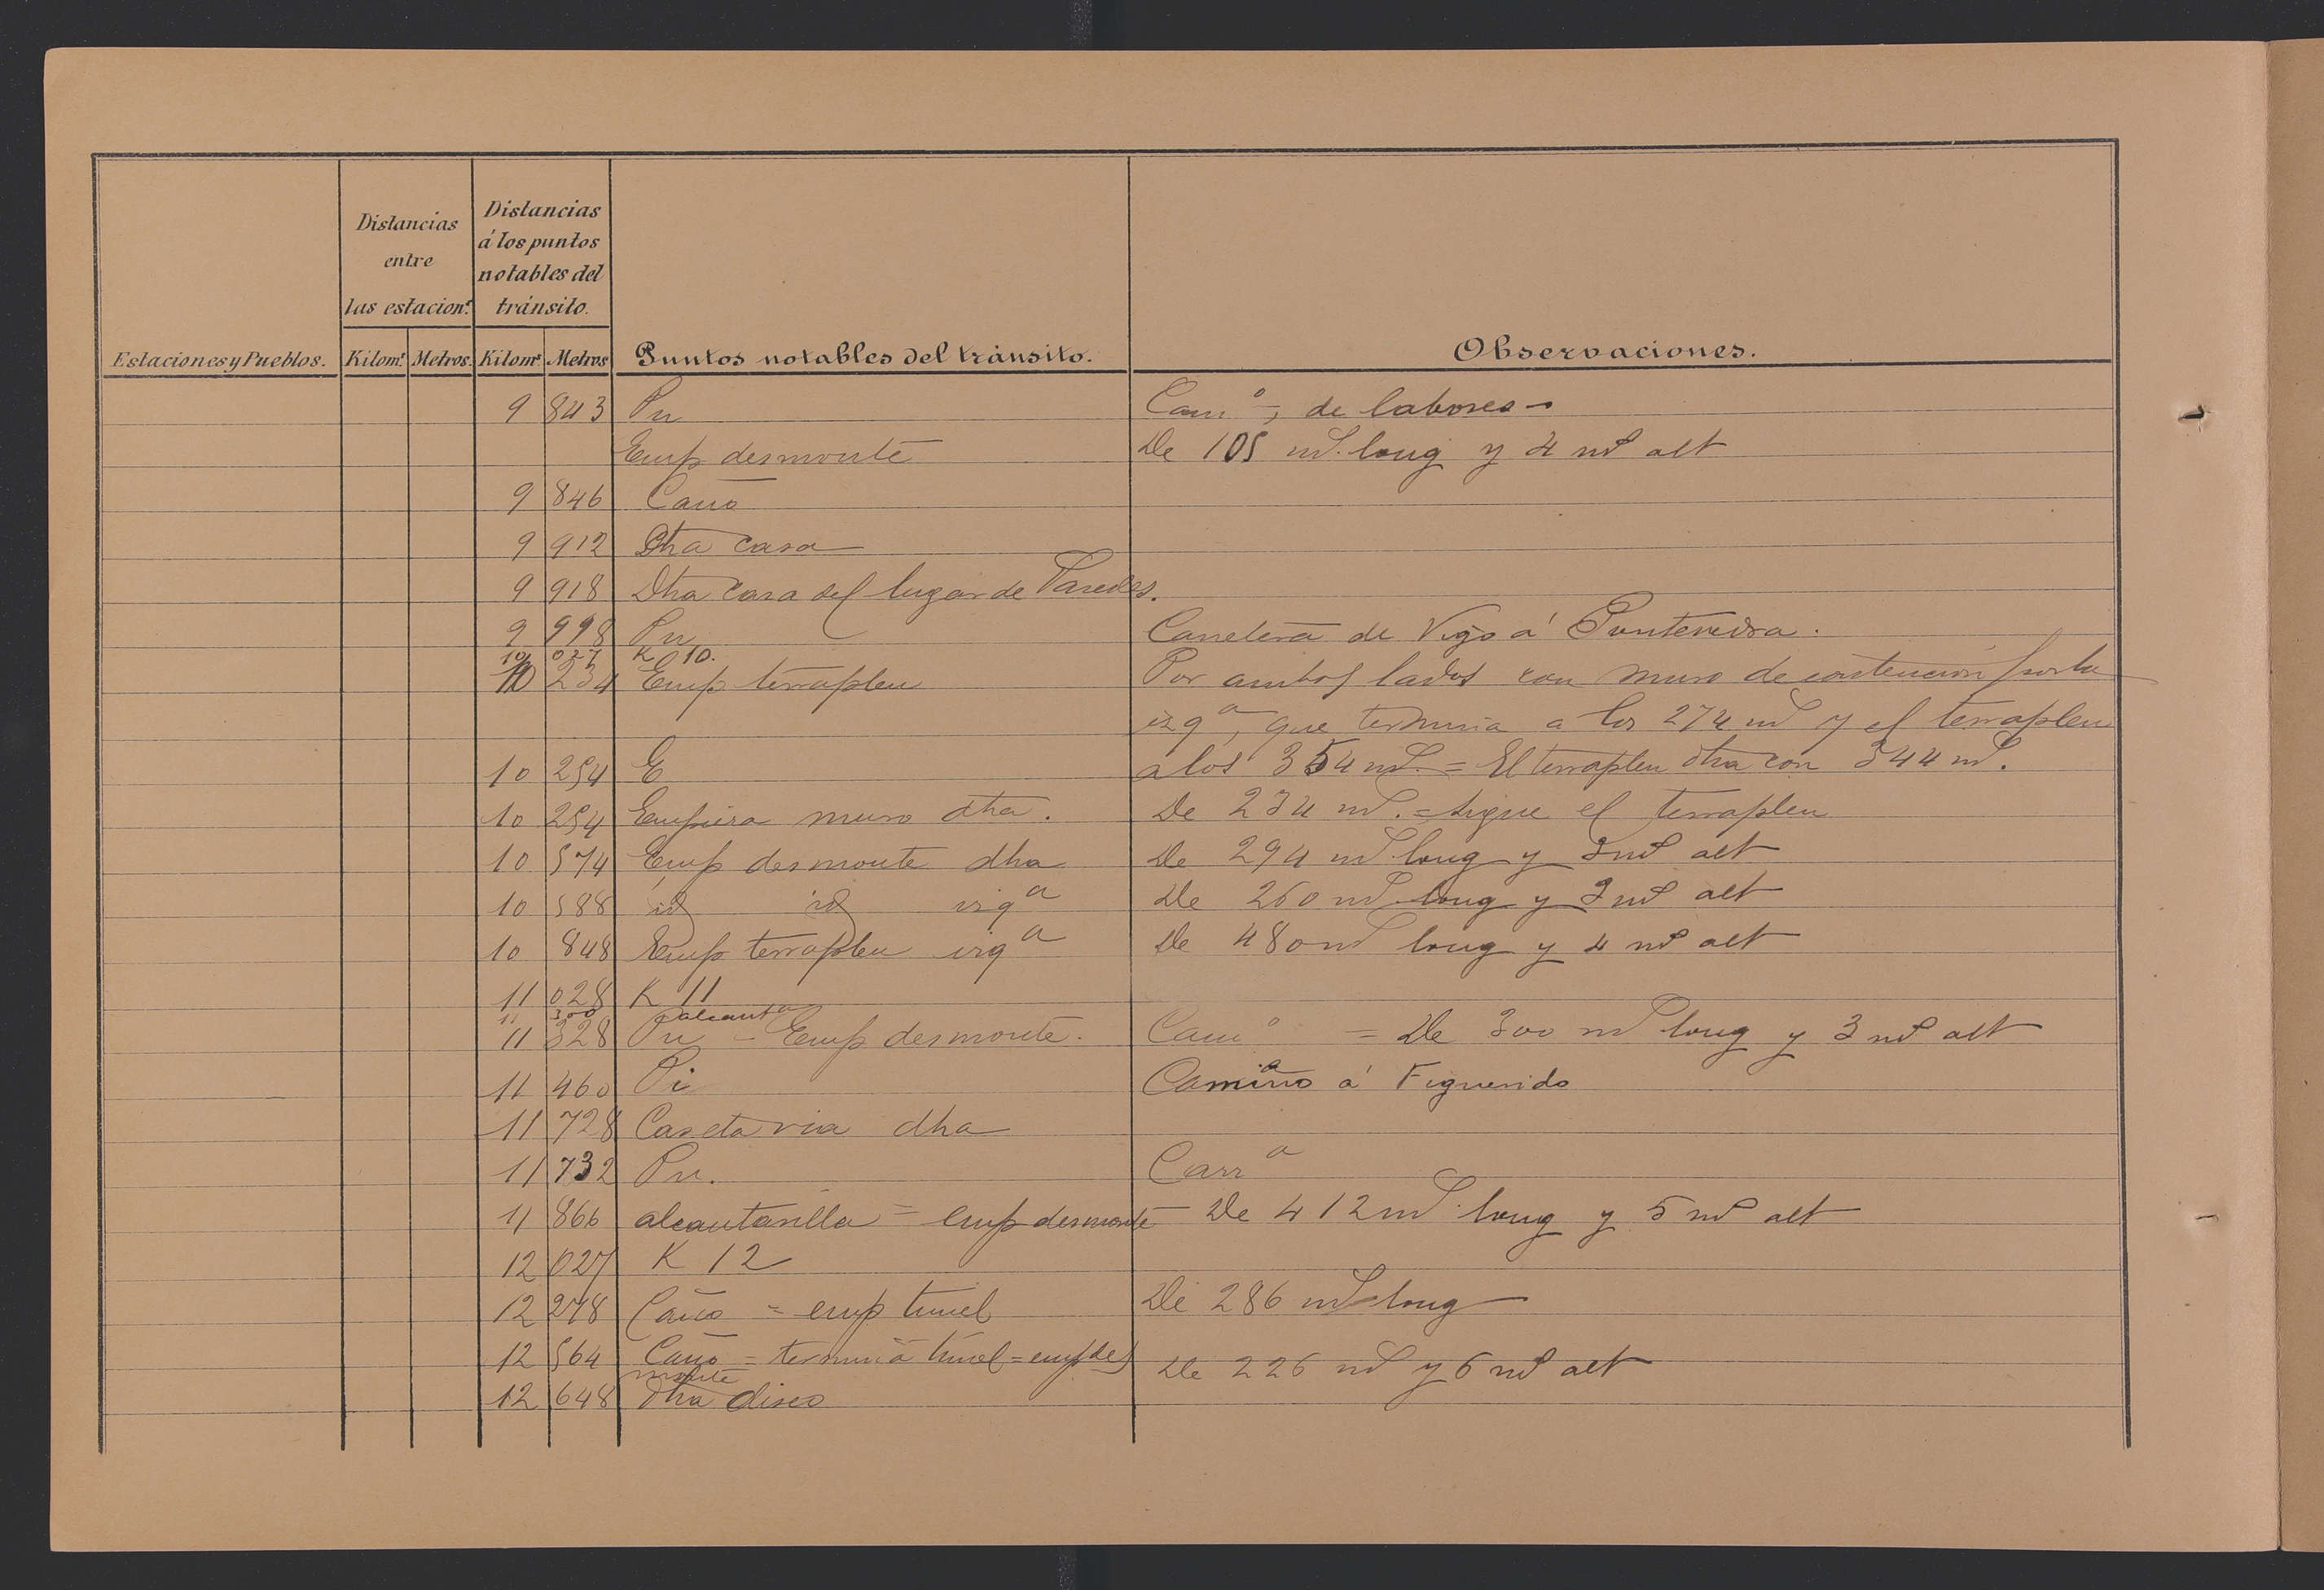 Estaciones y Pueblos. Distancias entre las estacion.s Kilom.s Metros. Distancias á los puntos notables del tránsito. Kilom.s Metros Puntos notables del tránsito. Observaciones.
9 843 Pn Cam.º, de labores
Emp desmonte De 105 ms. long y 4 ms alt
9 846 Caño
9 912 Dha casa
9 918 Dha casa del lugar de Paredes.
9 998 Pn Carretera de Vigo á Pontevedra.
10 027 K 10.
10 234 Emp terraplen Por ambos lados con muro de contención por la
izqª, que termina a los 274 ms y el terraplen
10 254 E a los 354 ms. = El terraplen dha con 344 ms.
10 254 Empieza muro dha. De 234 ms. = sigue el terraplen
10 574 Emp desmonte dha De 294 ms long y 3 ms alt
10 588 id id izqª De 260 ms long y 3 ms alt
10 848 Emp terraplen izqª De 480 ms long y 4 ms alt
11 028 K 11
11 300 alcantª
11 328 Pn = Emp desmonte. Camº = De 300 ms long y 3 ms alt
11 460 Pi Camino á Figueirido
11 728 Caseta via dha
11 732 Pn. Carrª
11 866 alcantarilla = emp desmonte De 412 ms. long y 5 ms alt
12 027 K 12
12 278 Caño = emp túnel De 286 ms long
12 564 Caño = termina túnel = emp des
monte De 226 ms y 6 ms alt
12 648 Dha disco